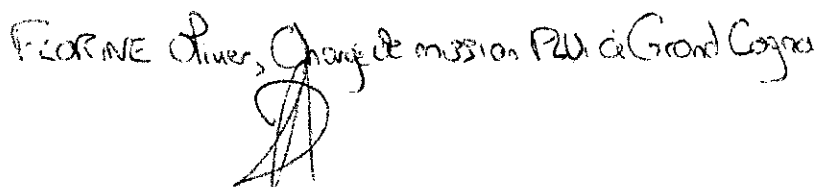 FLORINE Oliver, Chargée de mission PLUi à Grand Cognac